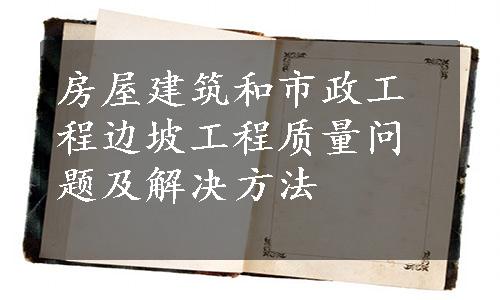 房屋建筑和市政工
程边坡工程质量问
题及解决方法